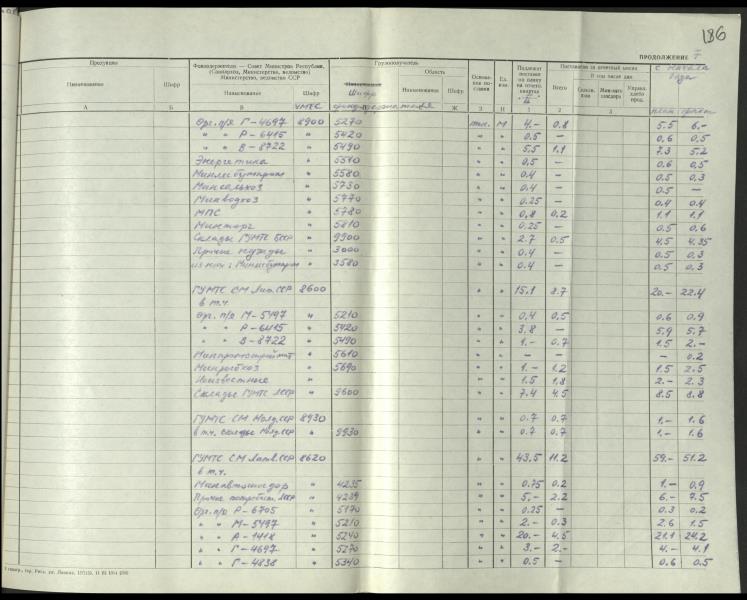 186
ПРОДОЛЖЕНИЕ
Продукция
Фондодержатели — Совет Министров Республики, (Санкция, Министерства, ведомство) Министерство, ведомство ССР
Грузополучатель
Область
Поставлено за отчетный месяц
с начала года
Наименование Шифр Наименование Шифр Шифр Наименование Шифр Ед. изм. Всего В том числе для план. факт.
А Б В УМТС фондодержателя Ж З И 1 2 3
Орг. п/я Г-4697 8900 5270 тыс. м 4.- 0.8 5.5 6.-
" " Р-6415 " 5420 " " 0.5 — 0.6 0.5
" " В-8722 " 5490 " " 5.5 1.1 7.3 5.2
Энергетика " 5510 " " 0.5 — 0.6 0.5
Минлесбумпром " 5580 " " 0.4 — 0.5 0.3
Минсельхоз " 5730 " " 0.4 — 0.5 —
Минводхоз " 5770 " " 0.25 — 0.4 0.4
МПС " 5780 " " 0.8 0.2 1.1 1.1
Минторг " 5810 " " 0.25 — 0.5 0.6
Склады ГУМТС БССР " 9900 " " 2.7 0.5 4.5 4.35
Прочие нужды " 3000 " " 0.4 — 0.5 0.3
из них: Минлесбумпром " 3580 " " 0.4 — 0.5 0.3
ГУМТС СМ Лит. ССР 8600 " " 15.1 8.7 20.- 22.4
в т.ч.
Орг. п/я М-5497 " 5210 " " 0.4 0.5 0.6 0.9
" " Р-6415 " 5420 " " 3.8 — 5.9 5.7
" " В-8722 " 5490 " " 1.- 0.7 1.5 2.-
Минпромстроймат " 5610 " " — — — 0.2
Минрыбхоз " 5690 " " 1.- 1.2 1.5 2.5
Неизвестные " " " 1.5 1.8 2.- 2.3
Склады ГУМТС ЛССР " 9600 " " 7.4 4.5 8.5 8.8
ГУМТС СМ Молд. ССР 8930 " " 0.7 0.7 1.- 1.6
в т.ч. склады Молд. ССР " 9930 " " 0.7 0.7 1.- 1.6
ГУМТС СМ Латв. ССР 8620 " " 43.5 11.2 59.- 51.2
в т.ч.
Минавтошосдор " 4235 " " 0.75 0.2 1.- 0.9
Прочие потребит. ЛССР " 4239 " " 5.- 2.2 6.- 7.5
Орг. п/я Р-6705 " 5170 " " 0.25 — 0.3 0.2
" " М-5497 " 5210 " " 2.- 0.3 2.6 1.5
" " А-1418 " 5240 " " 20.- 4.5 21.1 24.2
" " Г-4697 " 5270 " " 3.- 2.- 4.- 4.1
" " Г-4838 " 5340 " " 0.5 — 0.6 0.5